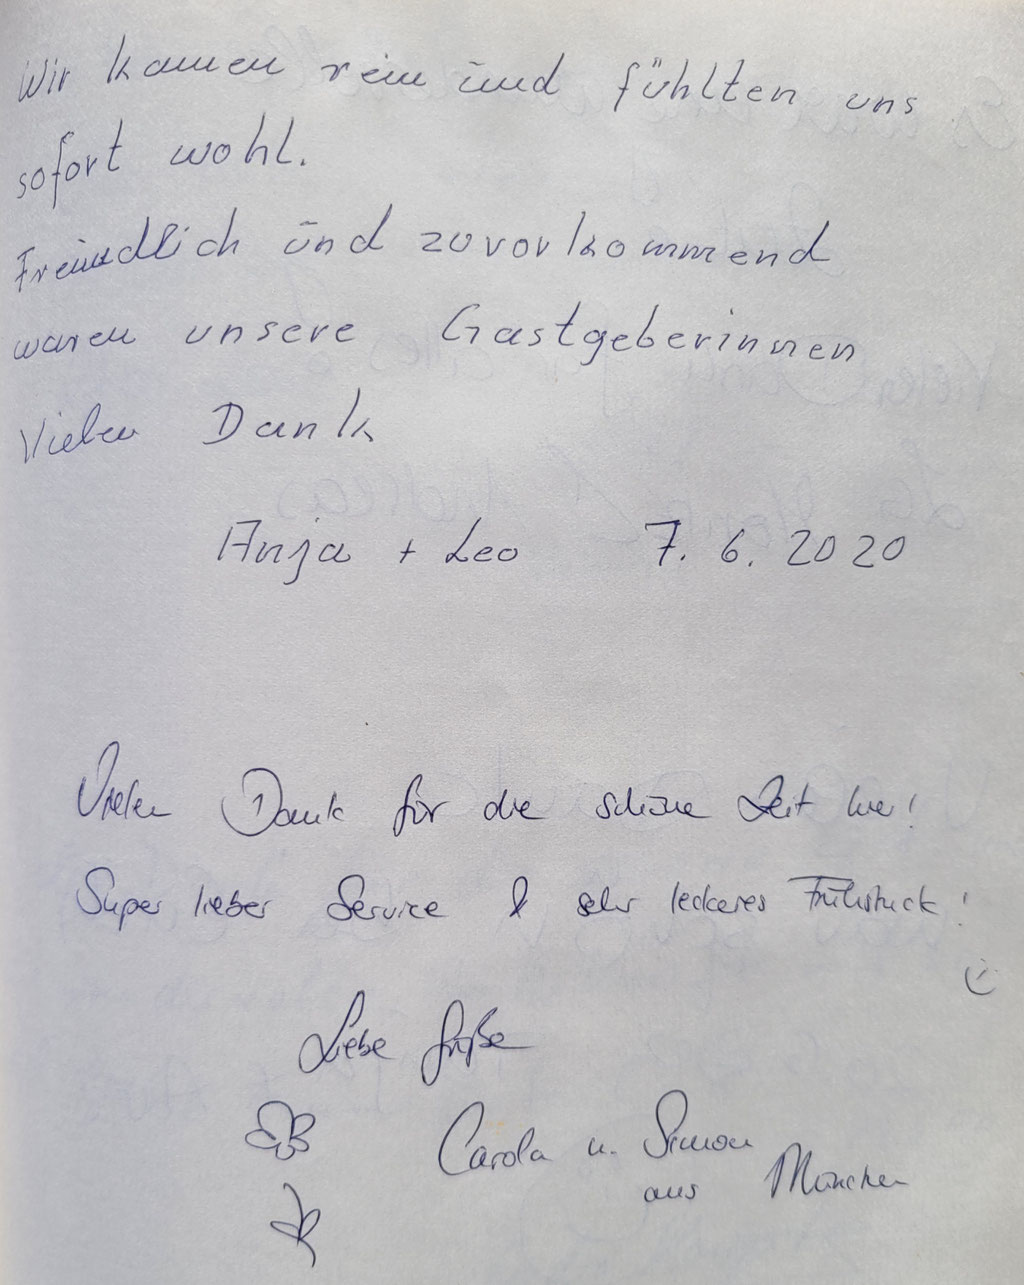 Wir kamen rein und fühlten uns
sofort wohl.
Freundlich und zuvorkommend
waren unsere Gastgeberinnen
Vielen Dank
Anja + Leo 7. 6. 2020
Vielen Dank für die schöne Zeit hier!
Super lieber Service & sehr leckeres Frühstück!
Liebe Grüße
Carola u. Simon
aus München